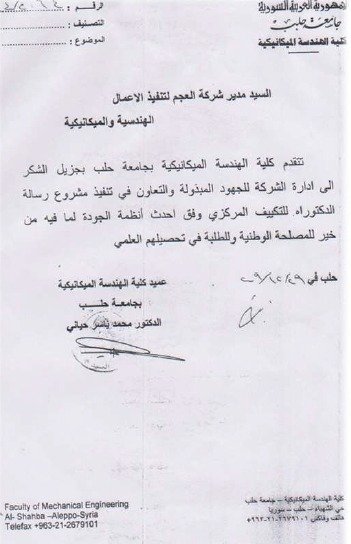 جمهورية العربية السورية
جامعة حلب
كلية الهندسة الميكانيكية
الرقم :
التصنيف :
الموضوع :
السيد مدير شركة العجم لتنفيذ الاعمال
الهندسية والميكانيكية
تتقدم كلية الهندسة الميكانيكية بجامعة حلب بجزيل الشكر
الى ادارة الشركة للجهود المبذولة والتعاون في تنفيذ مشروع رسالة
الدكتوراه للتكييف المركزي وفق احدث انظمة الجودة لما فيه من
خير للمصلحة الوطنية وللطلبة في تحصيلهم العلمي
حلب في
عميد كلية الهندسة الميكانيكية
بجامعة حلب
الدكتور محمد ياسر حياني
كلية الهندسة الميكانيكية – جامعة حلب
حي الشهباء – حلب – سوريا
هاتف وفاكس ٢٦٧٩١٠١-٢١-٩٦٣+
Faculty of Mechanical Engineering
Al- Shahba –Aleppo-Syria
Telefax +963-21-2679101